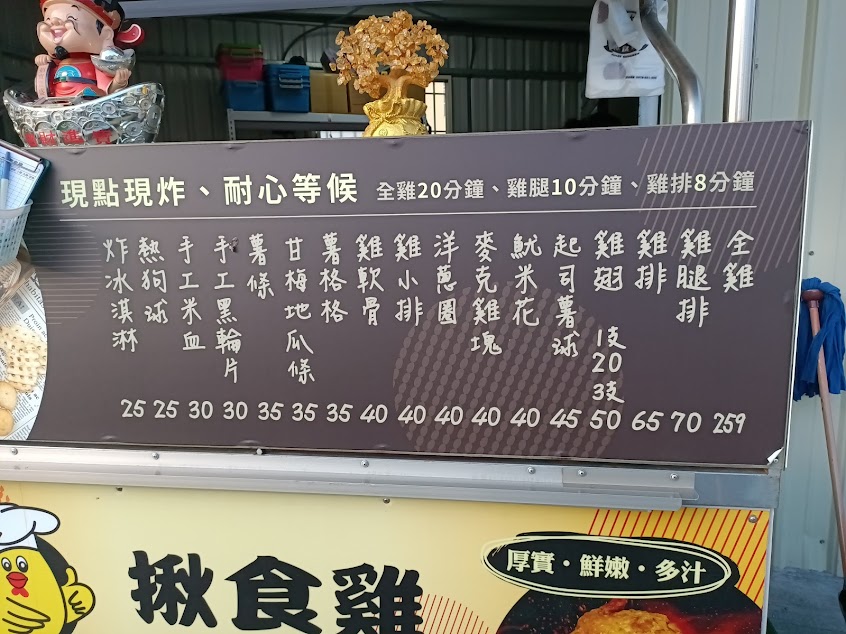 現點現炸、耐心等候 全雞20分鐘、雞腿10分鐘、雞排8分鐘
全雞 259
雞腿排 70
雞排 65
雞翅 1支20 3支50
起司薯球 45
魷米花 40
麥克雞塊 40
洋蔥圈 40
雞小排 40
雞軟骨 40
薯格格 35
甘梅地瓜條 35
薯條 35
手工黑輪片 30
手工米血 30
熱狗球 25
炸冰淇淋 25
厚實·鮮嫩·多汁
揪食雞